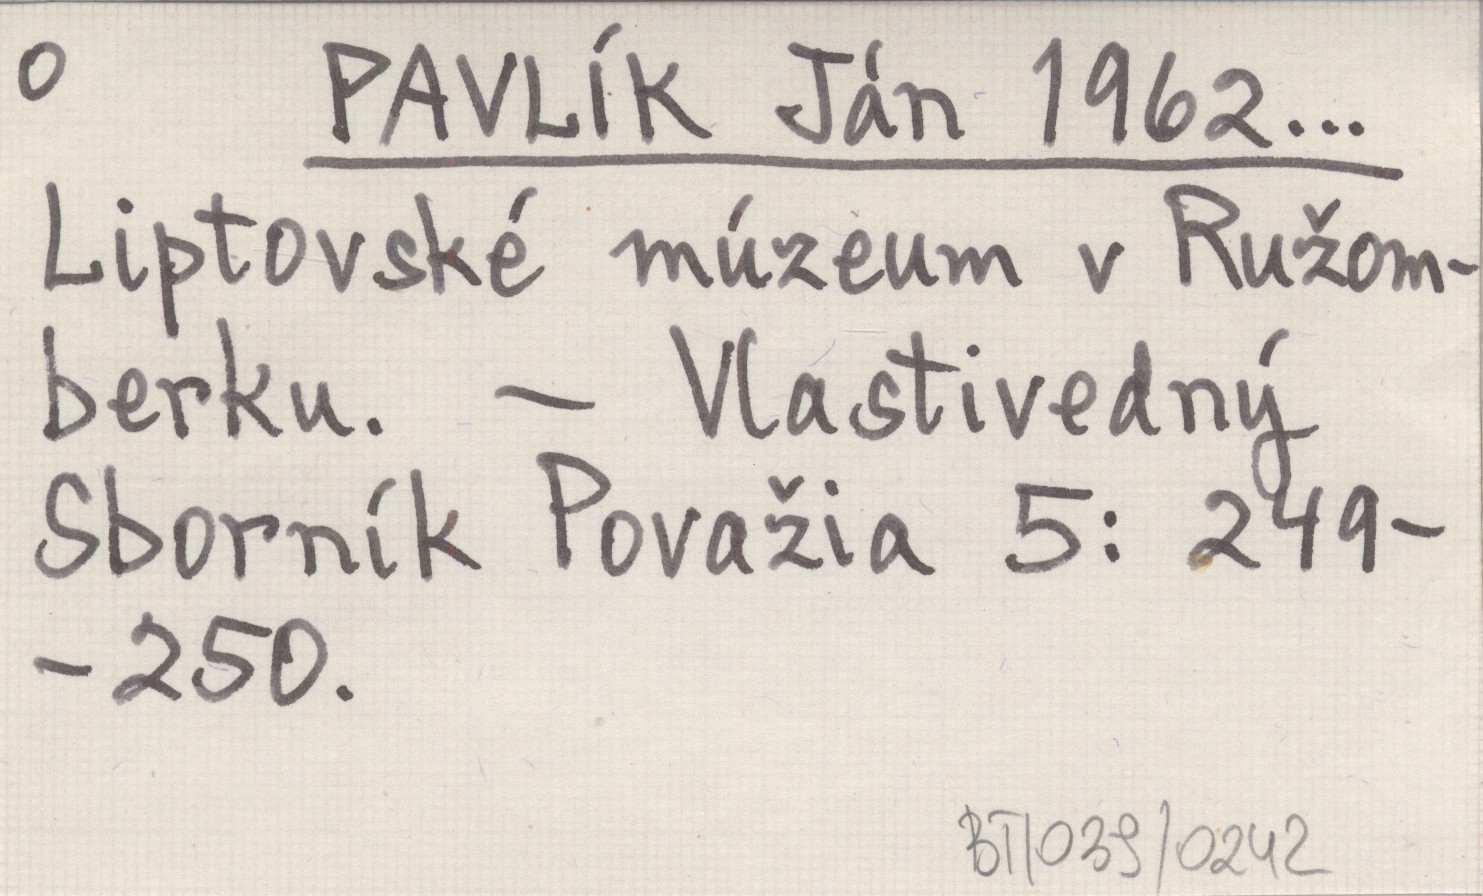 o PAVLÍK Ján 1962...
Liptovské múzeum v Ružom-
berku. – Vlastivedný
Sborník Považia 5: 249-
-250.
BT/039/0242